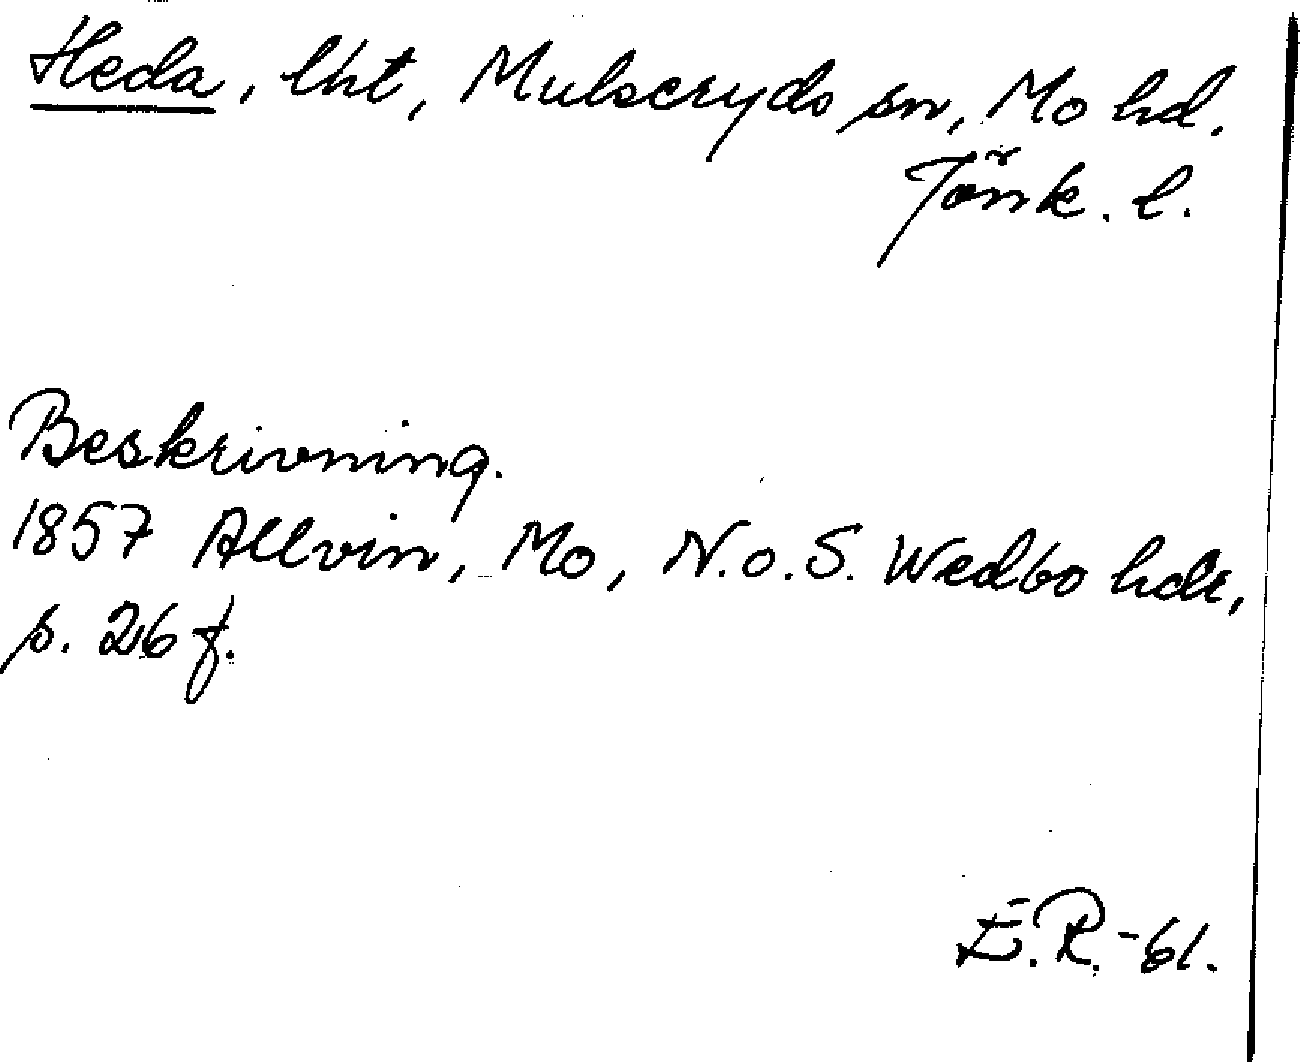 Heda, lht, Mulseryds sn, Mo hd.
Jönk. l.
Beskrivning.
1857 Allvin, Mo, N. o. S. Wedbo hdr,
s. 26 f.
E.R.-61.